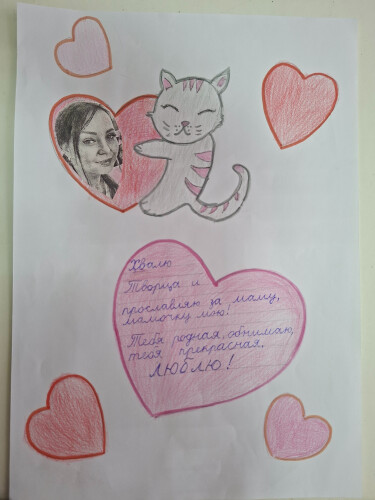 Хвалю
Творца и
прославляю за маму,
мамочку мою!
Тебя родная обнимаю,
тебя прекрасная.
ЛЮБЛЮ!